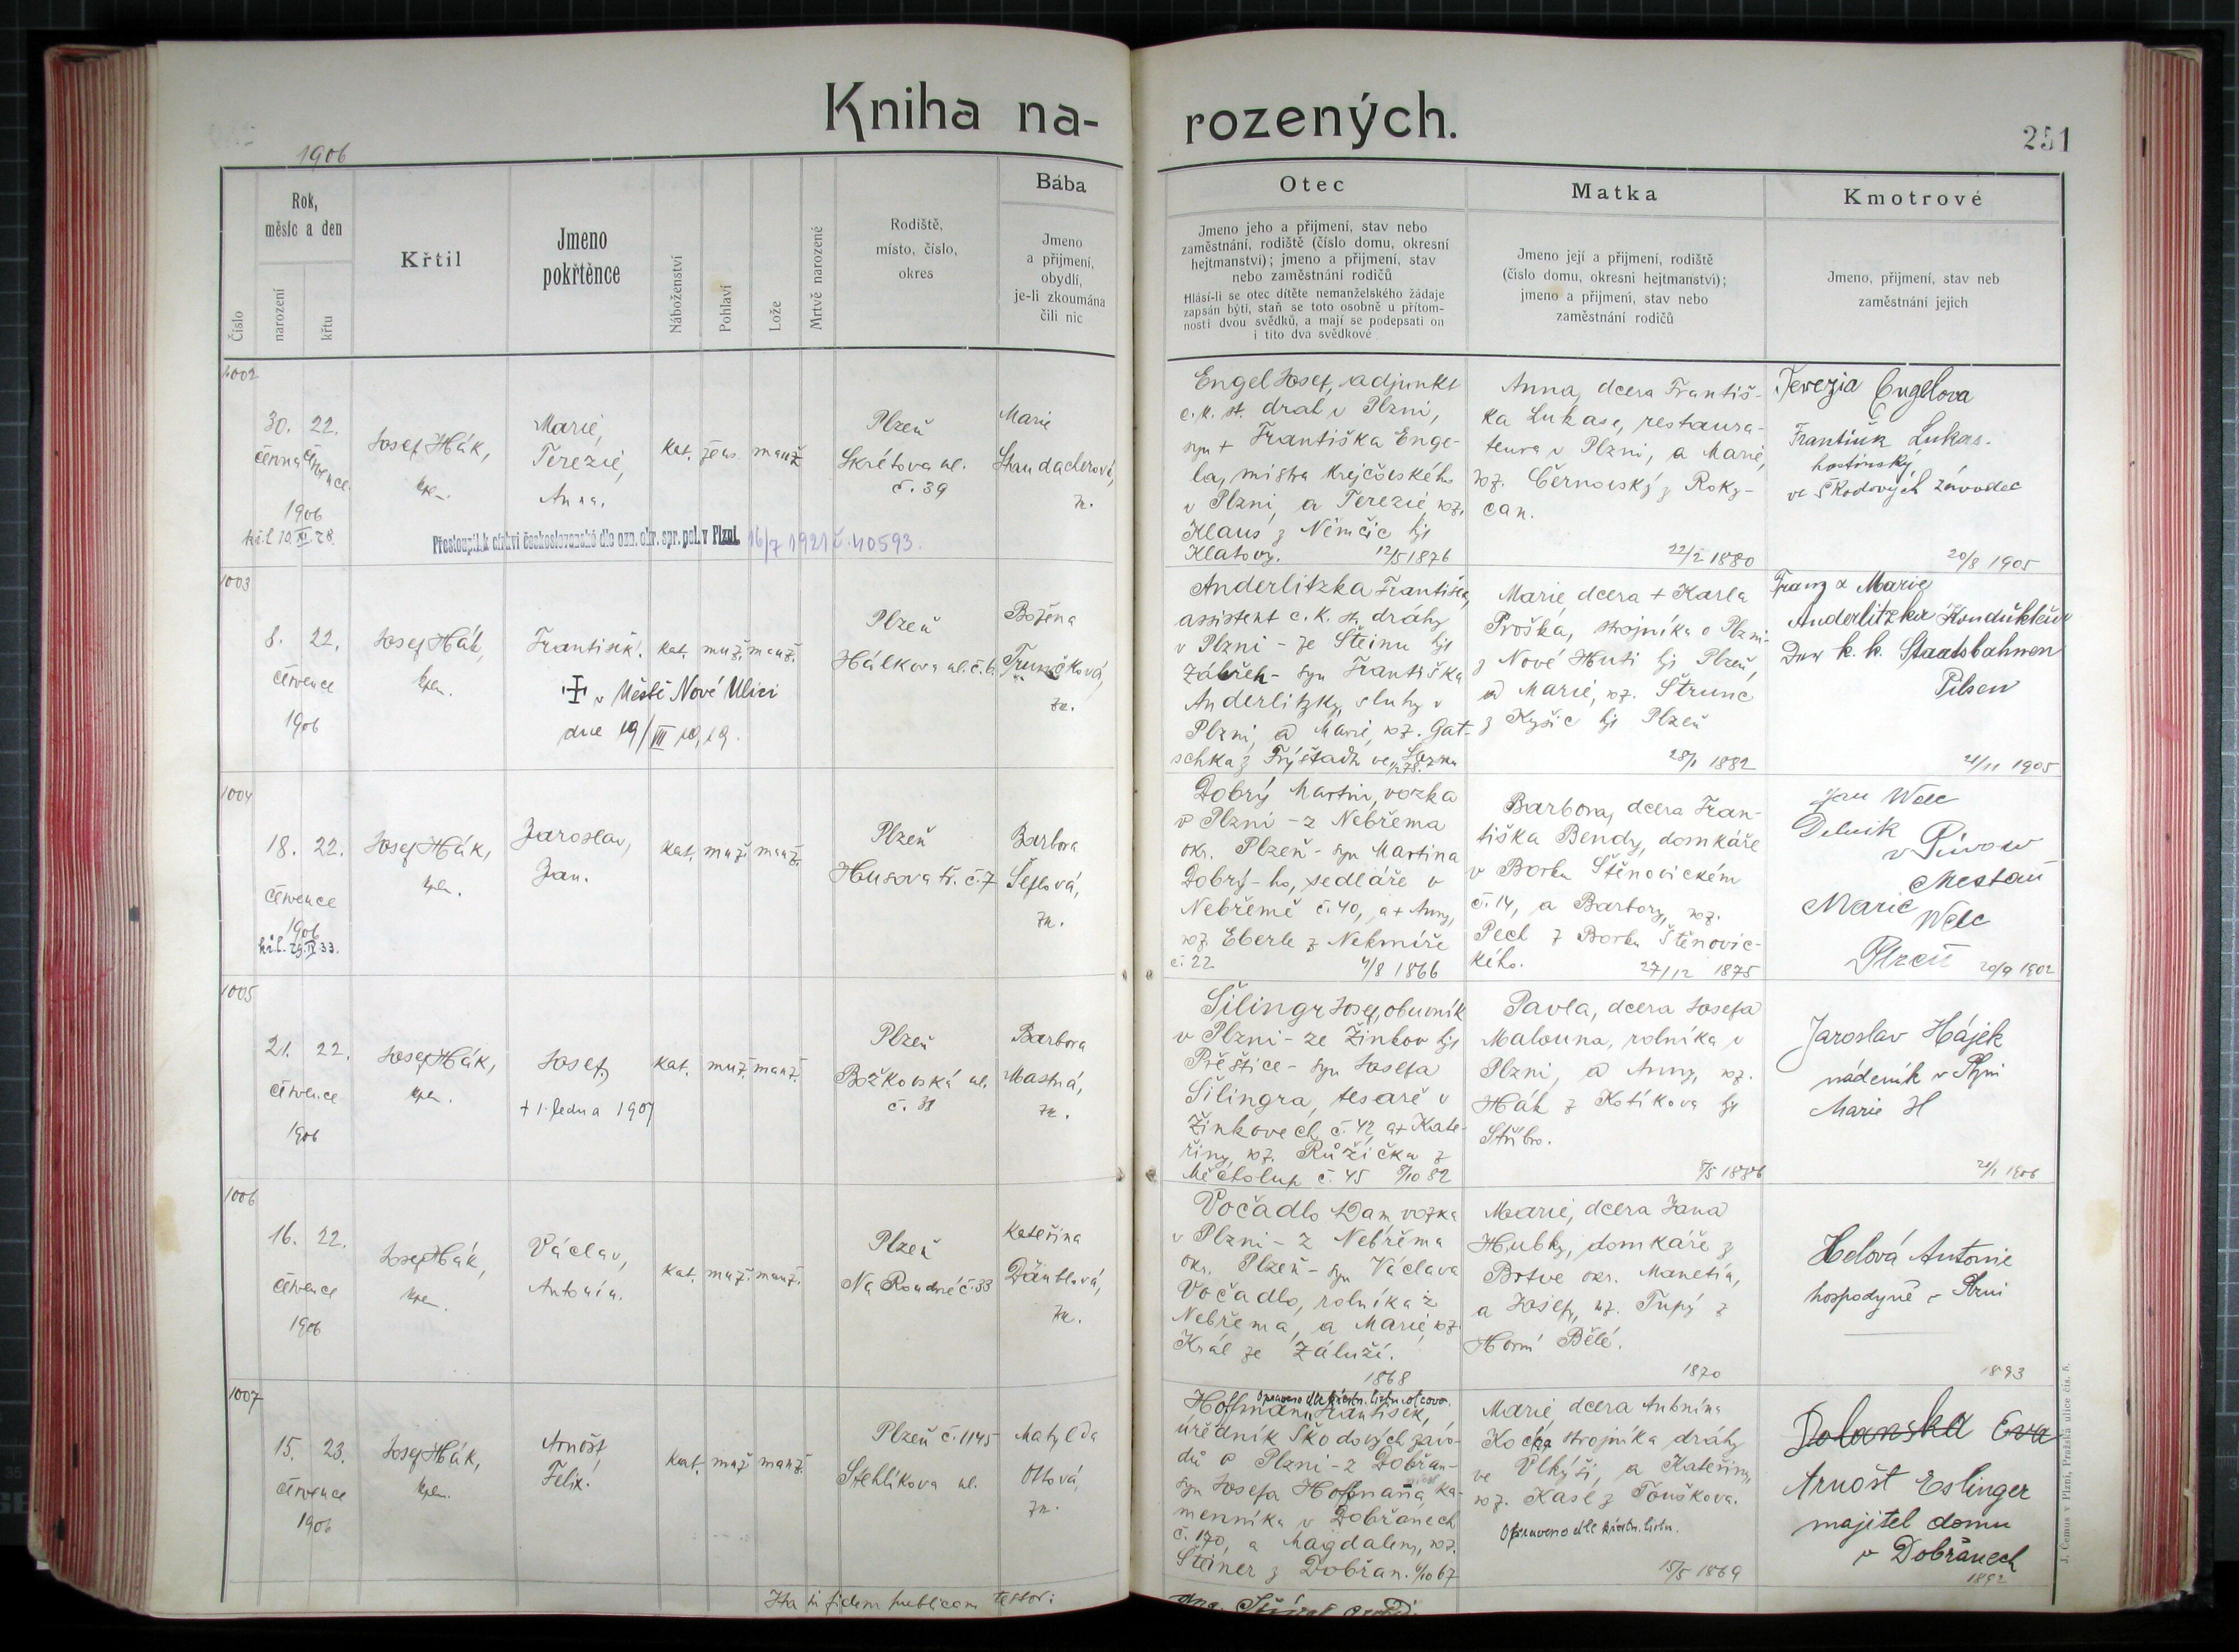 Kniha na-
rozených.
251
1906
Číslo
Rok,
měsíc a den
narození
křtu
Křtil
Jmeno
pokřtěnce
Náboženství
Pohlaví
Lože
Mrtvě narozené
Rodiště,
místo, číslo,
okres
Bába
Jmeno
a přijmení,
obydlí,
je-li zkoumána
čili nic
Otec
Jmeno jeho a přijmení, stav nebo
zaměstnání, rodiště (číslo domu, okresní
hejtmanství); jmeno a přijmení, stav
nebo zaměstnání rodičů
Hlásí-li se otec dítěte nemanželského žádaje
zapsán býti, staň se toto osobně u přítom-
nosti dvou svědků, a mají se podepsati on
i tito dva svědkové
Matka
Jmeno její a přijmení, rodiště
(číslo domu, okresní hejtmanství);
jmeno a přijmení, stav nebo
zaměstnání rodičů
Kmotrové
Jmeno, přijmení, stav neb
zaměstnání jejich
1002
30. 22.
června července
1906
Josef Hák,
kpl.
Marie,
Terezie,
Anna.
kat. žens. manž.
Plzeň
Skrétova ul.
č. 39
Marie
zk.
Přestoupil k církvi československé dle ozn. okr. spr. pol. v Plzni. 16/7 1921 č. 40593.
Engel Josef, adjunkt
c. k. st. drah v Plzni,
syn + Františka Enge-
la, mistra krejčovského
v Plzni, a Terezie, roz.
Klaus z Němčic hjt
Klatovy. 12/5 1876
Anna, dcera Františ-
ka Lukase, restaura-
teura v Plzni, a Marie,
roz. Černovský z Roky-
can.
22/2 1880
Terezia Engelova
František Lukas.
hostinský
ve Škodových závodec
20/8 1905
1003
8. 22.
července
1906
Josef Hák,
kpln.
František.
✠ v Městě Nové Ulici
dne 19/VII 1919.
kat. muž. manž.
Plzeň
Hálkova ul. č. 6.
Božena
Trunečková,
zk.
Anderlitzka František,
assistent c. k. st. dráhy
v Plzni - ze Šteinu hjt
Zábřeh - syn Františka
Anderlitzky, sluhy v
Plzni, a Marie, roz. Gat-
schka z Frýštadtu ve
Marie dcera + Karla
Proška, strojníka v Plzni-
z Nové Huti hjt Plzeň,
a Marie, roz. Štrunc
z Kyšic hjt Plzeň
28/1 1882
Franz & Marie
Anderlitzka Kondukteur
Der k. k. Staatsbahnen
Pilsen
21/11 1905
1004
18. 22.
července
1906
Josef Hák,
kpln.
Jaroslav,
Jan.
kat. muž. manž.
Plzeň
Husova tř. č. 7
Barbora
Šeflová,
zk.
Dobrý Martin, vozka
v Plzni - z Nebřema
okr. Plzeň - syn Martina
Dobrý-ho, sedláře v
Nebřemě č. 40, a + Anny,
roz. Eberle z Nekmíře
č. 22 4/8 1866
Barbora, dcera Fran-
tiška Bendy, domkáře
v Borku Štěnovickém
č. 14, a Barbory, roz.
Pech z Borku Štěnovic-
kého. 27/12 1875
Jan Welc
Delnik
v Pivow
Mestau
Marie
Welc
Plzeň 20/9 1902
1005
21. 22.
července
1906
Josef Hák,
kpln.
Josef,
+ 1. ledna 1907
kat. muž. manž.
Plzeň
Božkovská ul.
č. 31
Barbora
Mastná,
zk.
Šilingr Josef, obuvník
v Plzni - ze Žinkov hjt
Přeštice - syn Josefa
Šilingra, tesaře v
Žinkovech č. 42, a + Kate-
řiny, roz. Růžička z
Měcholup č. 45 8/10 82
Pavla, dcera Josefa
Malouna, rolníka v
Plzni, a Anny, roz.
Hák z Kotíkova hjt
Stříbro.
8/5 1886
Jaroslav Hájek
nádeník v Plzni
Marie H
21/1 1906
1006
16. 22.
července
1906
Josef Hák,
kpln.
Václav,
Antonín.
kat. muž. manž.
Plzeň
Na Roudné č. 33
Kateřina
zk.
Vočadlo Adam, vozka
v Plzni - z Nebřema
okr. Plzeň - syn Václava
Vočadlo, rolníka z
Nebřema, a Marie, roz.
Král ze Záluží.
1868
Marie, dcera Jana
Hubky, domkáře z
Brtve okr. Manetín,
a Josefy, roz. Tupý z
Horní Bělé.
1870
Helová Antonie
hospodyně v Plzni
1893
1007
15. 23.
července
1906
Josef Hák,
kpln.
Arnošt,
Felix.
kat. muž. manž.
Plzeň č. 1145
Stehlíkova ul.
Matylda
Ottová,
zk.
Opraveno dle křestn. listu otcova.
Hoffmann František,
úředník Škodových závo-
dů v Plzni - z Dobřan -
syn Josefa Hofmana, ka-
menníka v Dobřanech
č. 170, a Magdaleny, roz.
Šteiner z Dobřan. 4/10 67
Marie, dcera Antonína
strojníka dráhy
ve Vlkýši, a Kateřiny,
roz. Kasl z Touškova.
Opraveno dle křestn. listu.
15/5 1869
Dolanska Eva
Arnošt Eslinger
majitel domu
v Dobřanech
1892
Ita in fidem publicam testor:
J. Cemus v Plzni, Pražská ulice čís. 8.